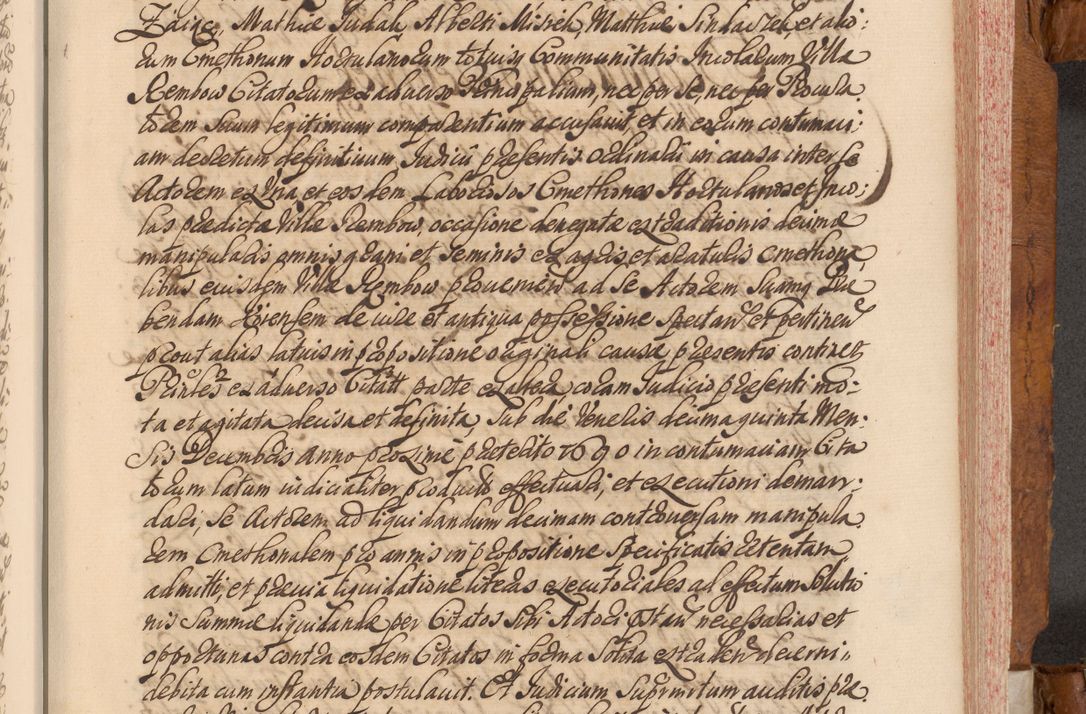 Zaiąc, Mathiæ Judah, Alberti Misrek, Matthiæ Sindarzek, et alio:
rum Cmethonum Hortulanorum totiusq Communitatis Incolarum Villæ
Rembow Citatorum ex adverso Principalium, nec per se, nec per Procura
torem suum legitimum comparentium accusavit, et in eorum contumaci:
am decretum definitivum Judicii præsentis ordinarii in causa inter se
Actorem ex una et eosdem Laboriosos Cmethones Hortulanos et Inco:
las prædictæ Villæ Rembow, occasione denegatæ extraditionis decimæ
manipularis omnis grani et seminis ex agris et araturis cmethona
libus eiusdem Villæ Rembow provenien ad se Actorem suamq Præ
bendam de iure et antiqua possessione spectan et pertinen
prout alias latius in propositione originali causæ præsentis continet
ex adverso Citatt parte ex altera, coram Judicio præsenti mo:
ta et agitata decisa et definita, sub die Veneris decima quinta Men:
sis Decembris anno proxime præterito 1690 in contumaciam Cita
torum latum iudicialiter produxit effectuari, et executioni deman:
dari, se Actorem ad liquidandum decimam controversam manipula
rem Cmethonalem pro annis in propositione specificatis retentam
admitti, et prævia liquidatione literas executoriales ad effectum solutio
nis summæ liquidandæ per Citatos sibi Actori præstan necessarias et
opportunas contra eosdem Citatos in forma solita extraden decerni
debita cum instantia postulavit. Et Judicium Suprmitum auditis præ